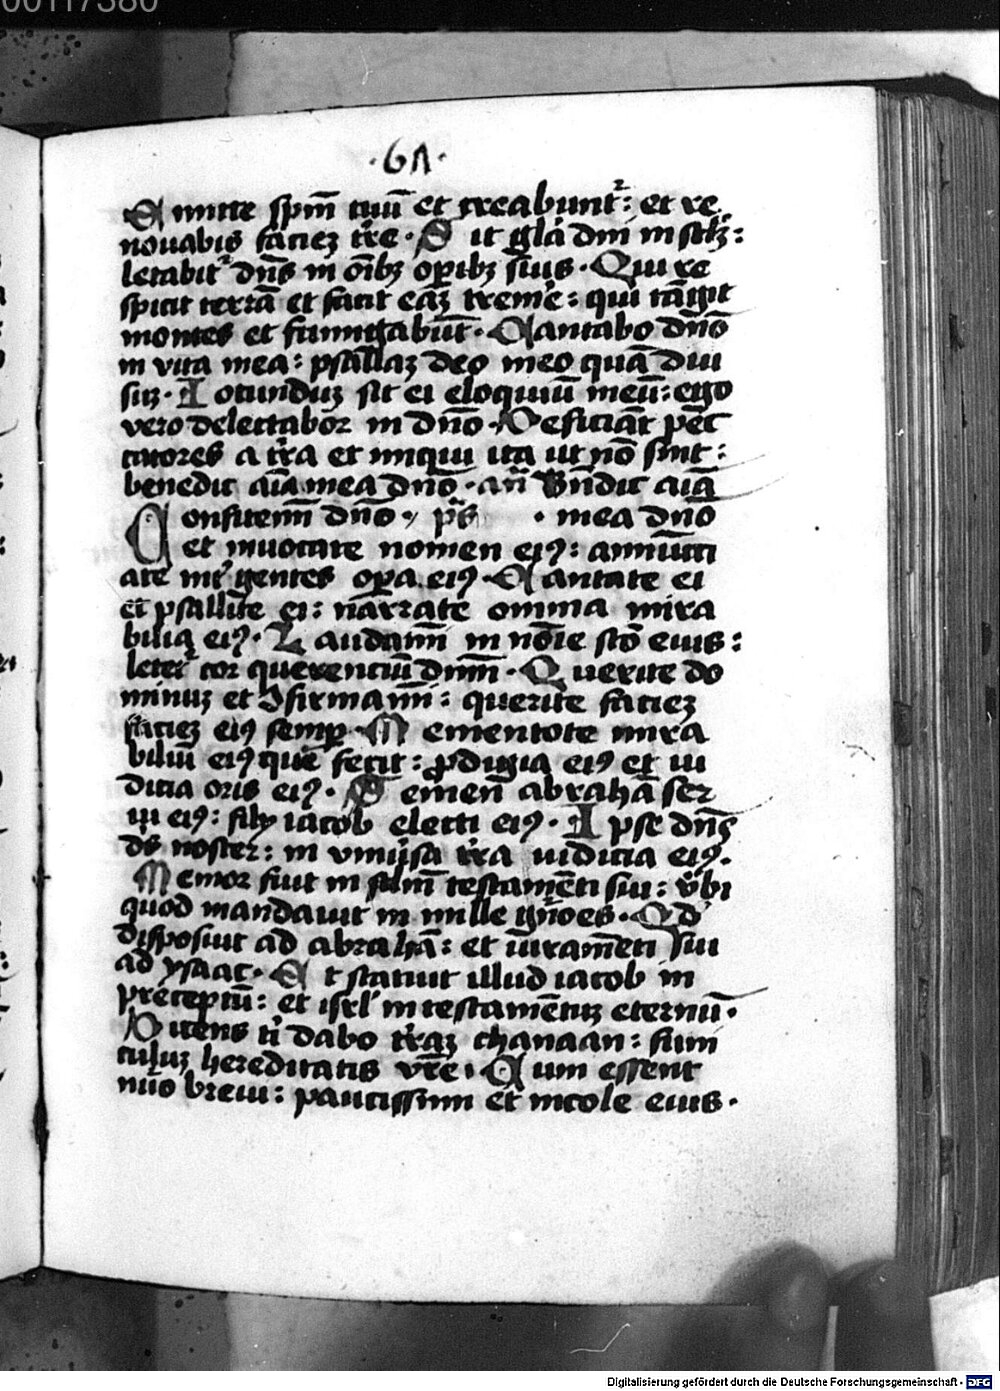 00117380
·61·
Emitte spm̄ tuū et creabunt᷑: et re
nouabis faciez tr̄e· Sit gl̄a dni in sclꝫ:
letabit᷑ dn̄s in oībꝫ oꝑibꝫ suis· Qui re
spicit terrā et facit eaꝫ tremē: qui tāgit
montes et fumigabūt· Cantabo dn̄o
in vita mea: psallaꝫ deo meo quā diu
siꝫ· Iocunduꝫ sit ei eloquiū meū: ego
vero delectabor in dn̄o· Deficiāt pec̄
catores a tr̄a et iniqui ita ut nō sint:
benedic aīa mea dn̄o· an̄ Bn̄dic aīā
Confitemī dn̄o· ps̄ · mea dn̄o
et inuocate nomen eiꝰ: annūti
ate int᷑ gentes oꝑa eiꝰ· Cantate ei
et psallite ei: narrate omnia mira
bilia eiꝰ· Laudamī in nōie scō eius:
letet᷑ cor querentiū dnm̄· Querite do
minuꝫ et ꝯfirmamī: querite faciez
faciez eiꝰ semꝑ· Mementote mira
biliū eiꝰ que fecit: ꝓdigia eiꝰ et iu
dicia oris eiꝰ· Semen abrahā ser
ui eiꝰ: filij iacob electi eiꝰ· Ipse dn̄s
de᷑ noster: in vniu̇sa tr̄a iudicia eiꝰ·
Memor fuit in sclm̄ testamēti sui: v̄bi
quod mandauit in mille gn̄oes· Qd᷑
disposuit ad abrahā: et iuramēti sui
ad ysaac· Et statuit illud iacob in
preceptū: et isrl᷑ in testamētuꝫ eternū·
Dicens ti᷑ dabo tr̄aꝫ chanaan: funi
culuꝫ hereditatis vr̄e· Cum essent
nūo breui: paucissimi et incole eius·
Digitalisierung gefördert durch die Deutsche Forschungsgemeinschaft - DFG